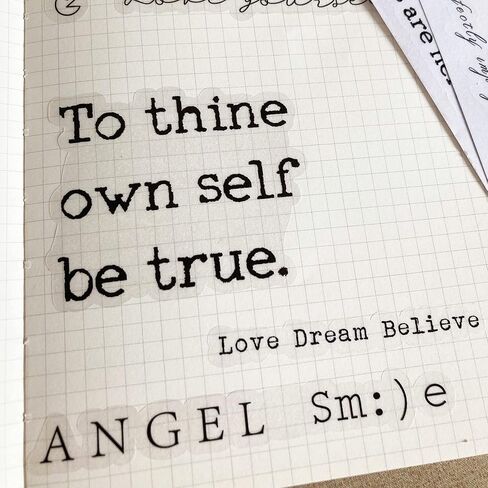 Love yourself
To thine
own self
be true.
Love Dream Believe
ANGEL Sm:)e